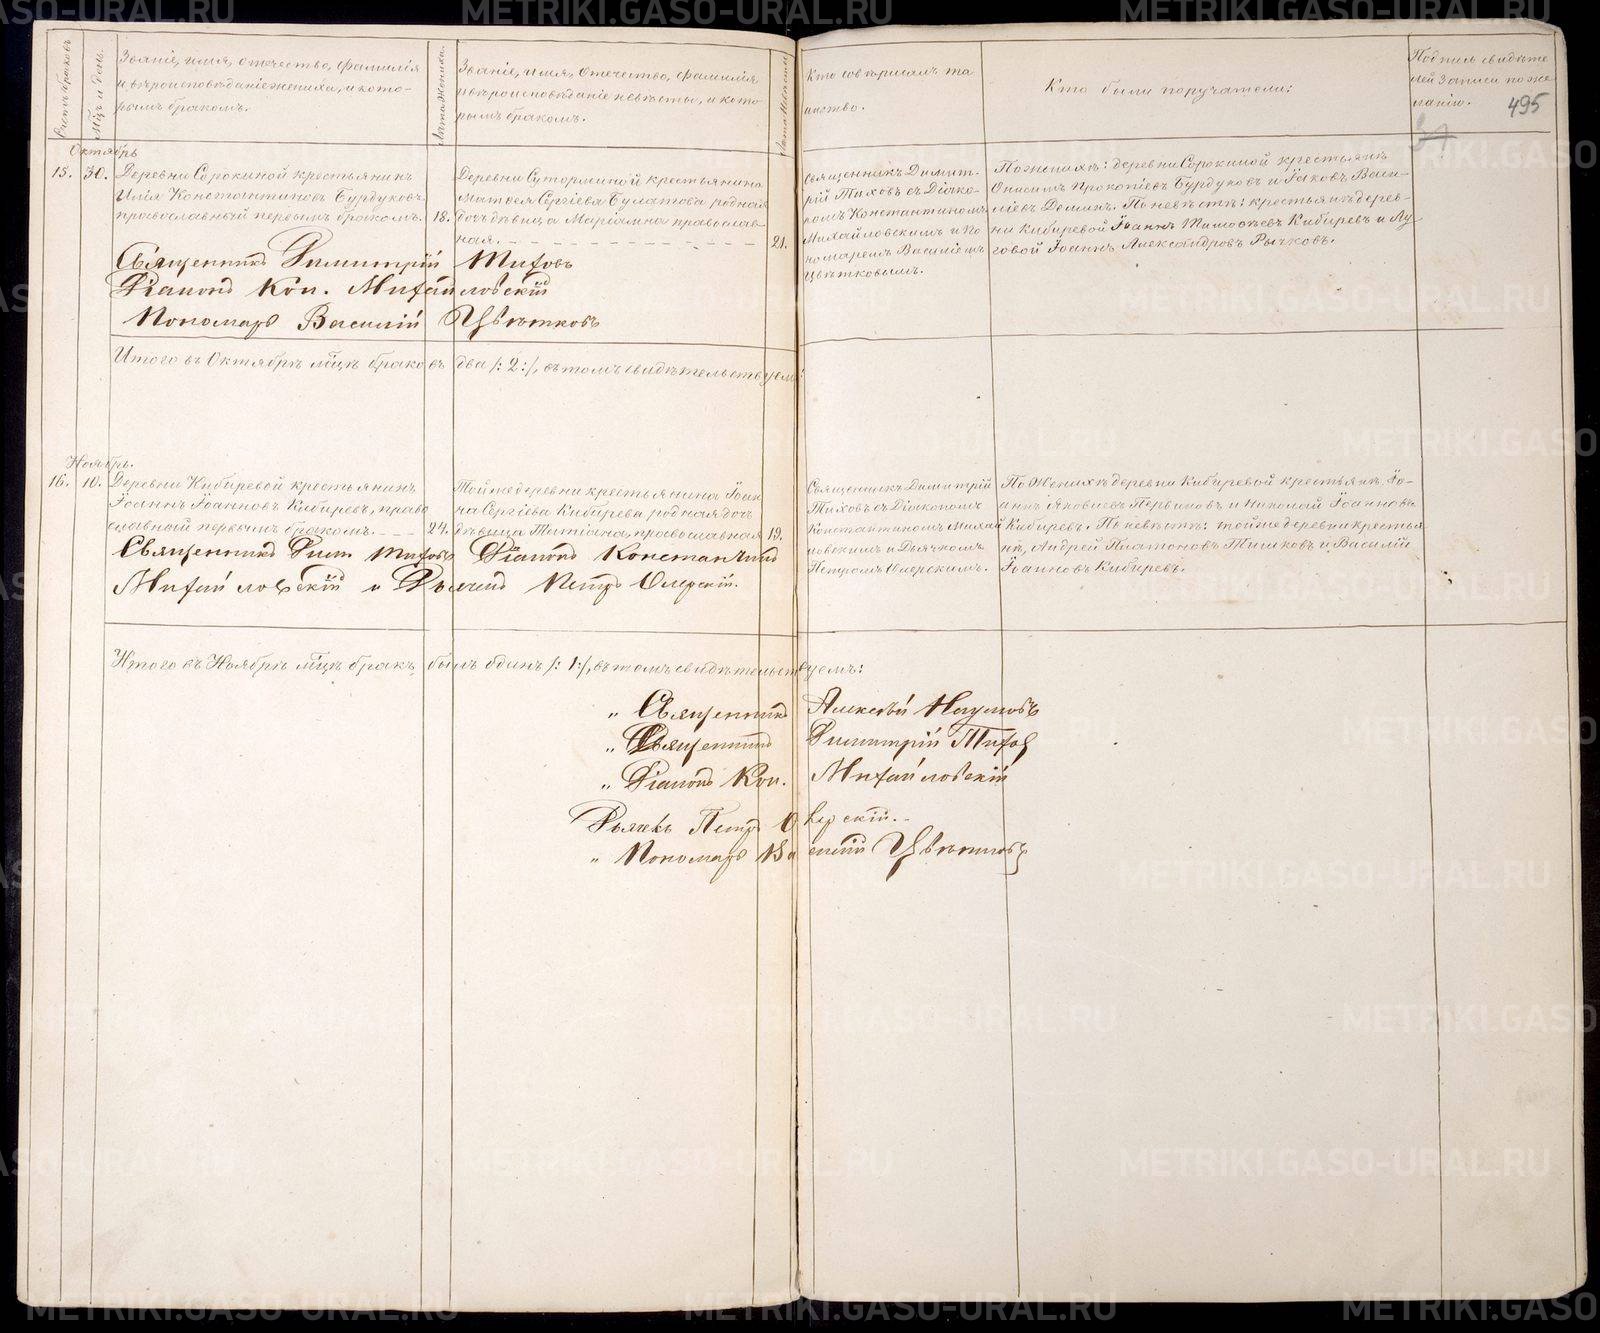 Счетъ браковъ
Мѣс. и день.
Званіе, имя, отчество, фамилія
и вѣроисповѣданіе жениха, и кото-
рымъ бракомъ.
Лѣта Жениха.
Званіе, имя, отечество, фамилія
и вѣроисповѣданіе невѣсты, и кото
рымъ бракомъ.
Лѣта Невѣсты
Кто совершалъ та
инство.
Кто были поручатели:
Подпись свидѣте
лей записи по же
ланію.
495
Октябрь
15. 30. Деревни Сорокиной крестьянинъ
Илія Константиновъ Бурдуковъ
православный первымъ бракомъ. 18.
Деревни Суторминой крестьянина
Матѳея Сергіева Булатова родная
дочь дѣвица Маріамна православ-
ная. 21.
Священникъ Димит-
рій Тиховъ съ Діако-
номъ Константиномъ
Михайловскимъ и По
номаремъ Василіемъ
Цвѣтковымъ.
По женихѣ: деревни Сорокиной крестьянѣ
Онисимъ Прокопіевъ Бурдуковъ и Іаковъ Васи-
ліевъ Деминъ. По невѣстѣ: крестьянѣ дерев-
ни Кибиревой Іоаннъ Тимоѳеевъ Кибиревъ и Лу-
говой Іоаннъ Александровъ Рычковъ.
Священникъ Димитрій Тиховъ
Діаконъ Кон. Михайловскій
Пономарь Василій Цвѣтковъ
Итого въ Октябрѣ мѣсцѣ браковъ два /: 2 :/, въ томъ свидѣтельствуемъ:
Ноябрь.
16. 10. Деревни Кибиревой крестьянинъ
Іоаннъ Іоанновъ Кибиревъ, право
славный первымъ бракомъ. 24.
Той же деревни крестьянина Іоан
на Сергіева Кибирева родная доч
дѣвица Татіана, православная 19.
Священникъ Димитрій
Тиховъ съ Діакономъ
Константиномъ Михай
ловскимъ и Дьячкомъ
Петромъ Озерскимъ.
По Женихѣ деревни Кибиревой крестьянѣ Іо-
аннъ Яковлевъ Первиновъ и Николай Іоанновъ
Кибиревъ. По невѣстѣ: той же деревни крестья
нѣ, Андрей Платоновъ Тишковъ и Василій
Іоанновъ Кибиревъ.
Священникъ Дим. Тиховъ Діаконъ Константинъ
Михайловскій и Дьячекъ Петръ Озерскій.
Итого въ Ноябрѣ мѣсцѣ бракъ былъ одинъ /: 1 :/, въ томъ свидѣтельствуемъ:
„ Священникъ Алексѣй Наумовъ
„ Священникъ Димитрій Тиховъ
„ Діаконъ Кон. Михайловскій
Дьячекъ Петръ Озерскій.
„ Пономарь Василій Цвѣтковъ